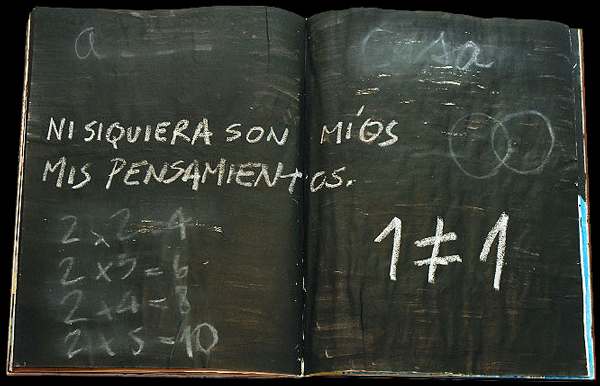 a
Casa
NI SIQUIERA SON MÍOS
MIS PENSAMIENTOS.
2 x 2 = 4
2 x 3 = 6
2 x 4 = 8
2 x 5 = 10
1 ≠ 1